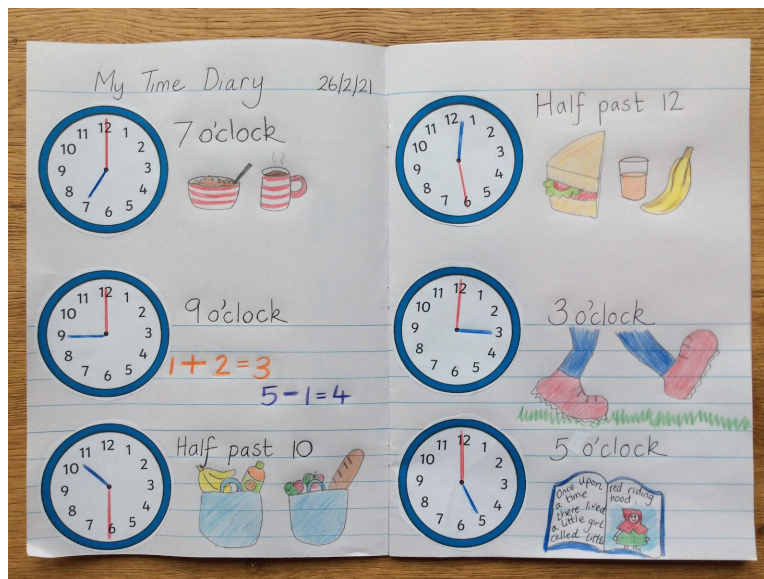 My Time Diary 26/2/21
12 1 2 3 4 5 6 7 8 9 10 11
7 o'clock
12 1 2 3 4 5 6 7 8 9 10 11
9 o'clock
1 + 2 = 3
5 - 1 = 4
12 1 2 3 4 5 6 7 8 9 10 11
Half past 10
12 1 2 3 4 5 6 7 8 9 10 11
Half past 12
12 1 2 3 4 5 6 7 8 9 10 11
3 o'clock
12 1 2 3 4 5 6 7 8 9 10 11
5 o'clock
Once upon
a time
there lived
a little girl
called little
red riding
hood.